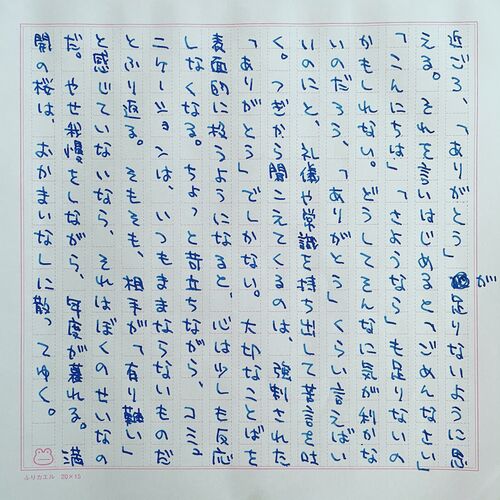 近ごろ、「ありがとう」が足りないように思
える。それを言いはじめると「ごめんなさい」
「こんにちは」「さようなら」も足りないの
かもしれない。どうしてそんなに気が利かな
いのだろう、「ありがとう」くらい言えばい
いのにと、礼儀や常識を持ち出して苦言を吐
く。つぎから聞こえてくるのは、強制された
「ありがとう」でしかない。大切なことばを
表面的に扱うようになると、心は少しも反応
しなくなる。ちょっと苛立ちながら、コミュ
ニケーションは、いつもままならないものだ
とふり返る。そもそも、相手が「有り難い」
と感じていないなら、それはぼくのせいなの
だ。やせ我慢をしながら、年度が暮れる。満
開の桜は、おかまいなしに散ってゆく。
ふりカエル 20×15